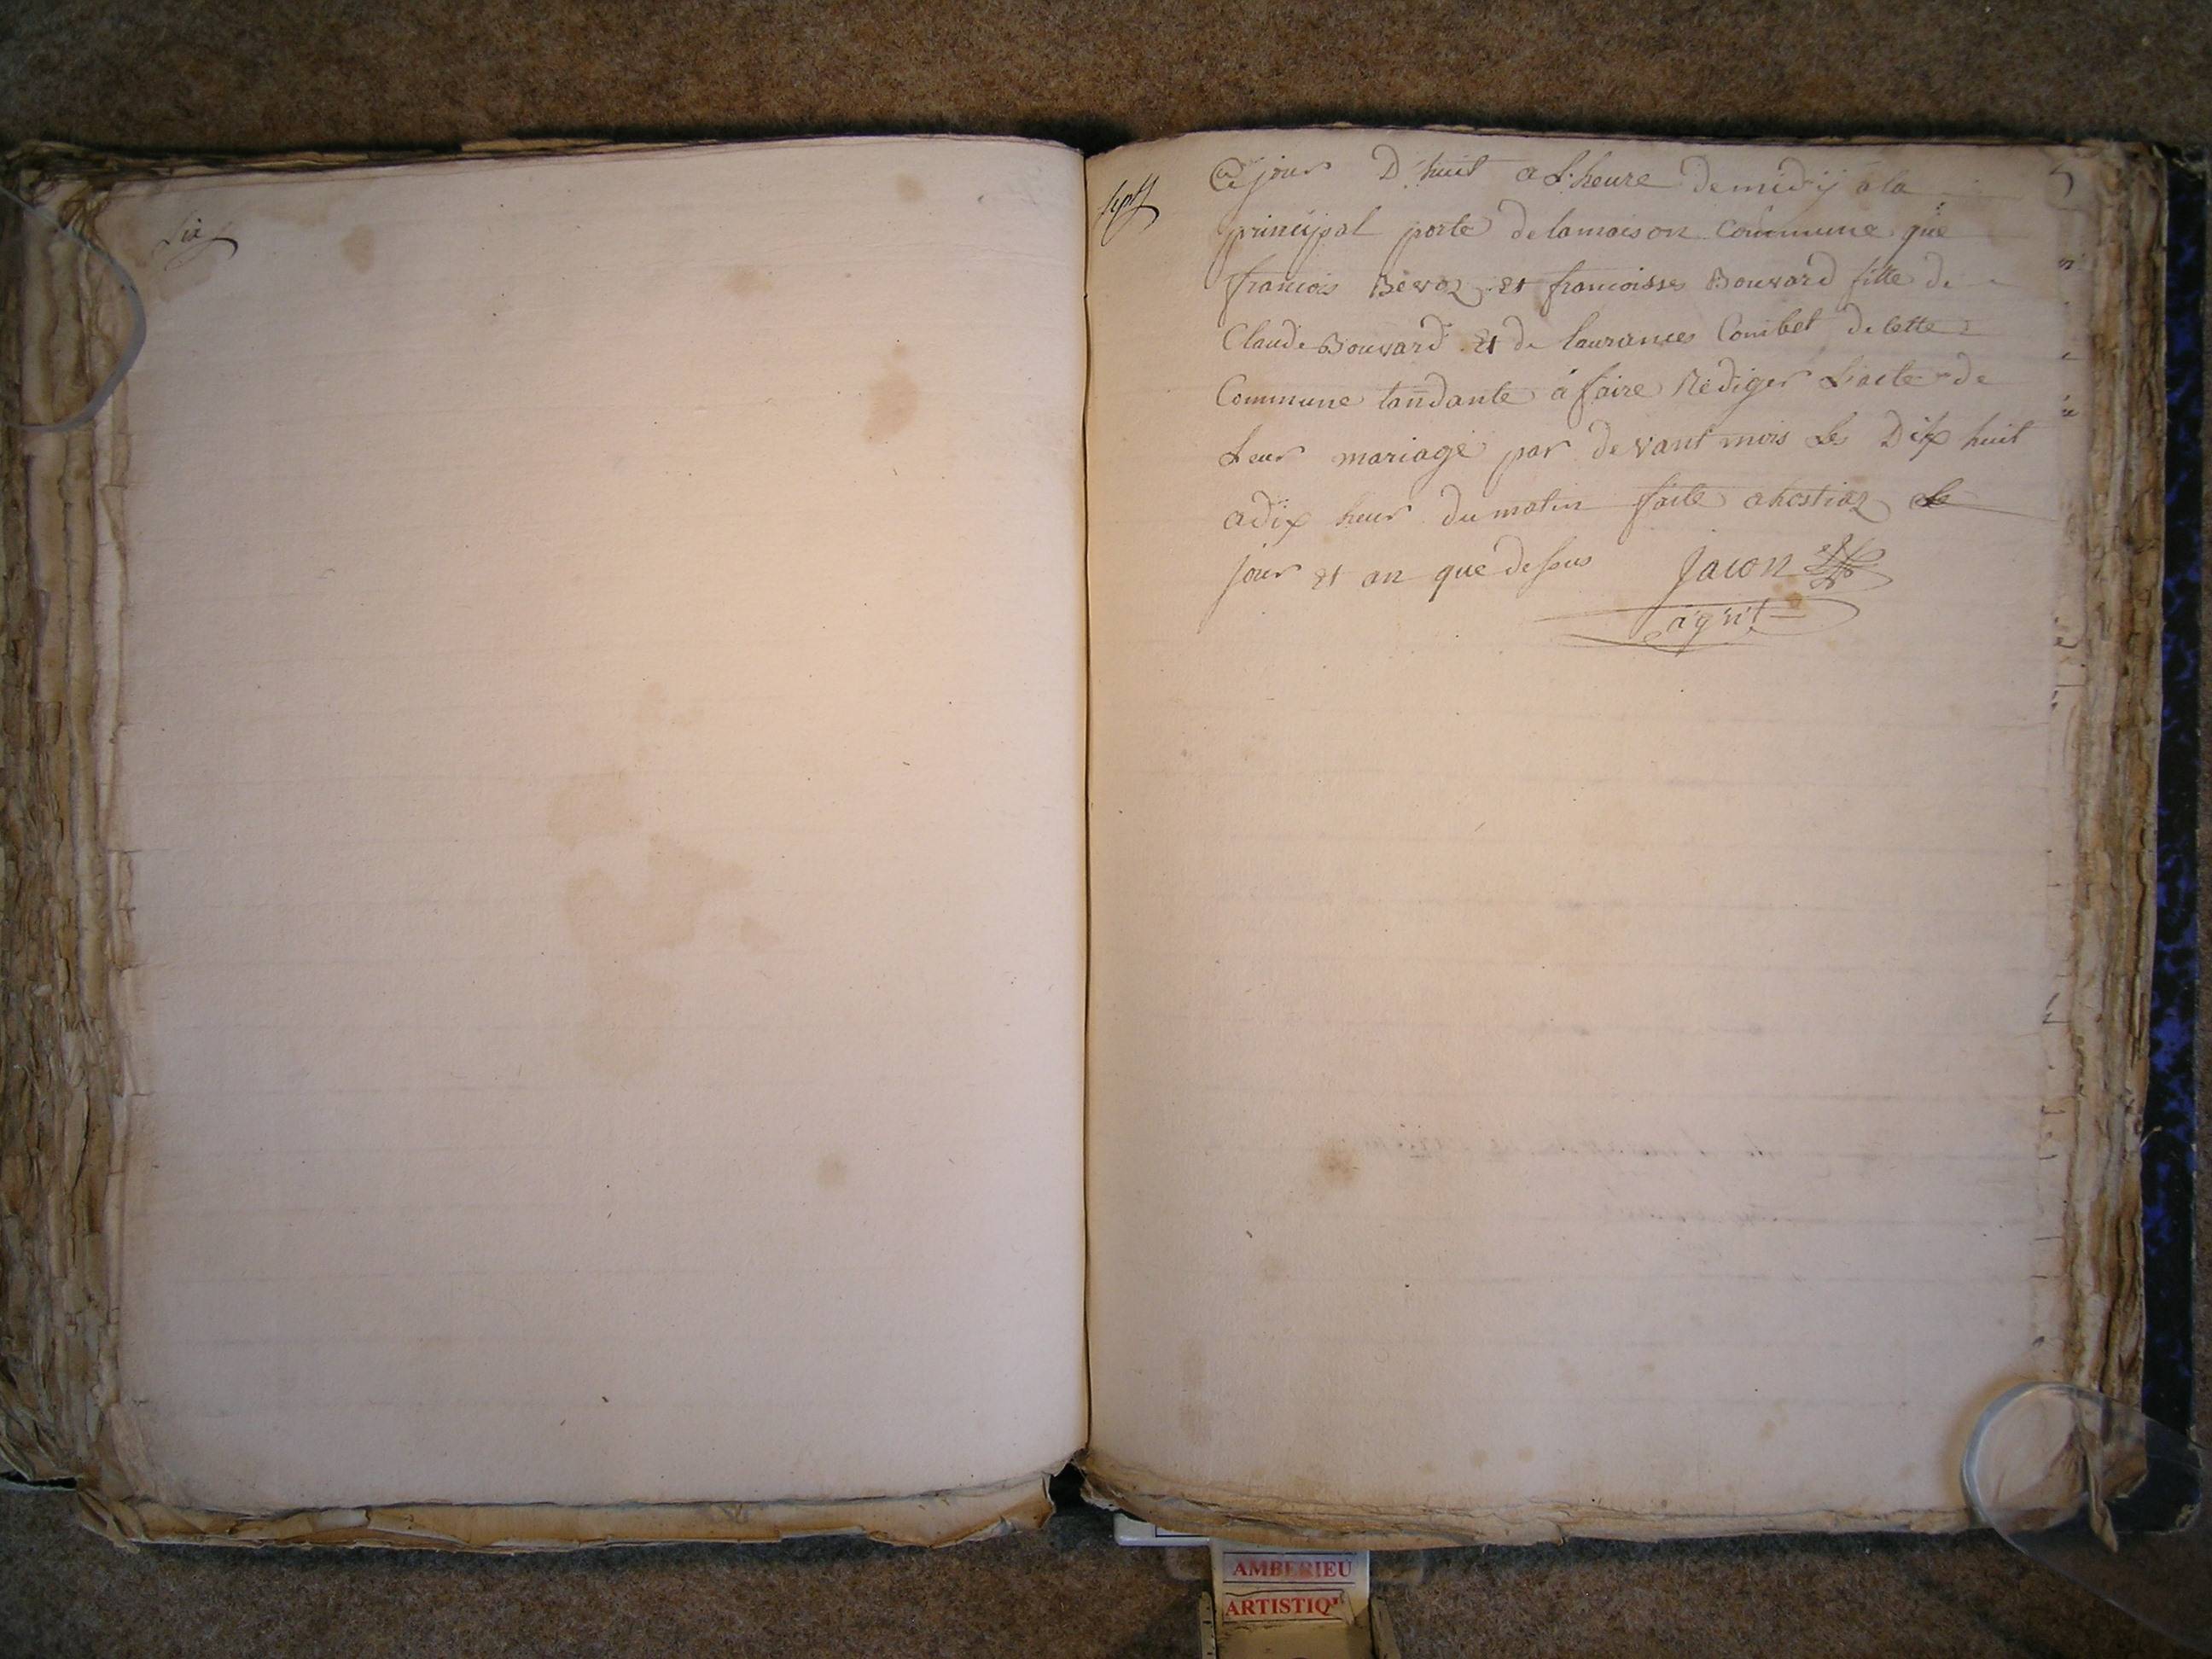 Six
sept
Ce jour D'huit a L'heure de midÿ a la
principal porte de la maison Commune que
francois Bevoz et francoisse Bouvard fille de
Claude Bouvard Et de laurance Combet de cette
Commune tandante à faire Rediger L'acte de
Leur mariage par devant mois Le Dix huit
a dix heur du matin faite a hostiaz le
jour Et an que dessus Jacon
AMBERIEU
ARTISTIQ